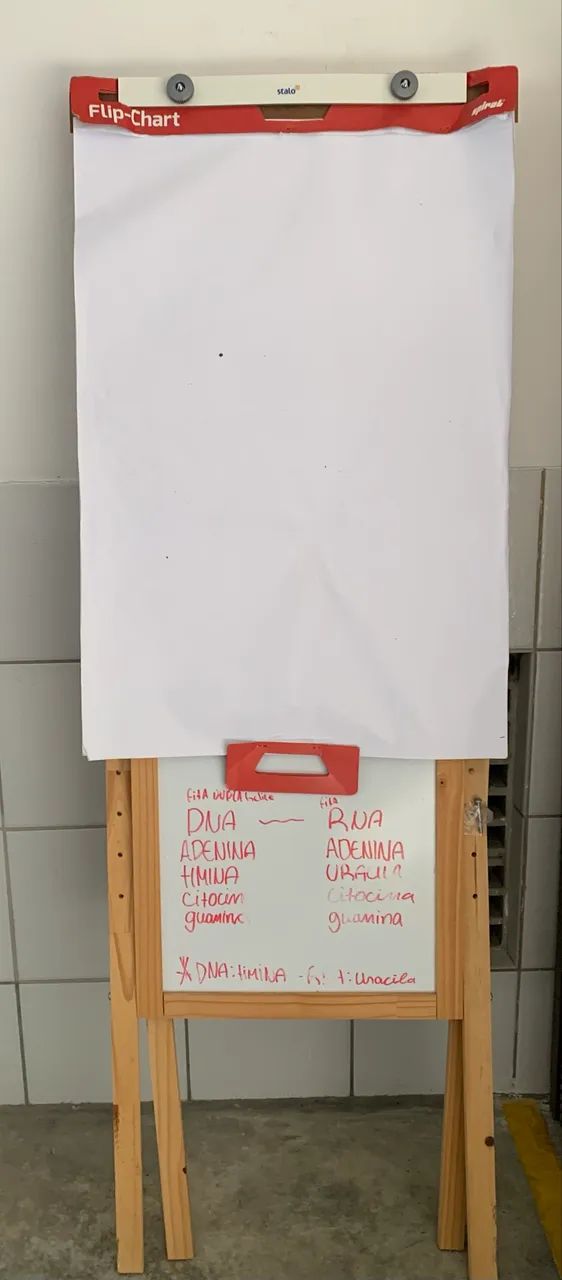 stalo
Flip-Chart spiral
fita DUPLA hélice fita
DNA RNA
ADENINA ADENINA
tIMINA URACIL
Citocin citocina
guanina guanina
DNA: tIMINA Uracila